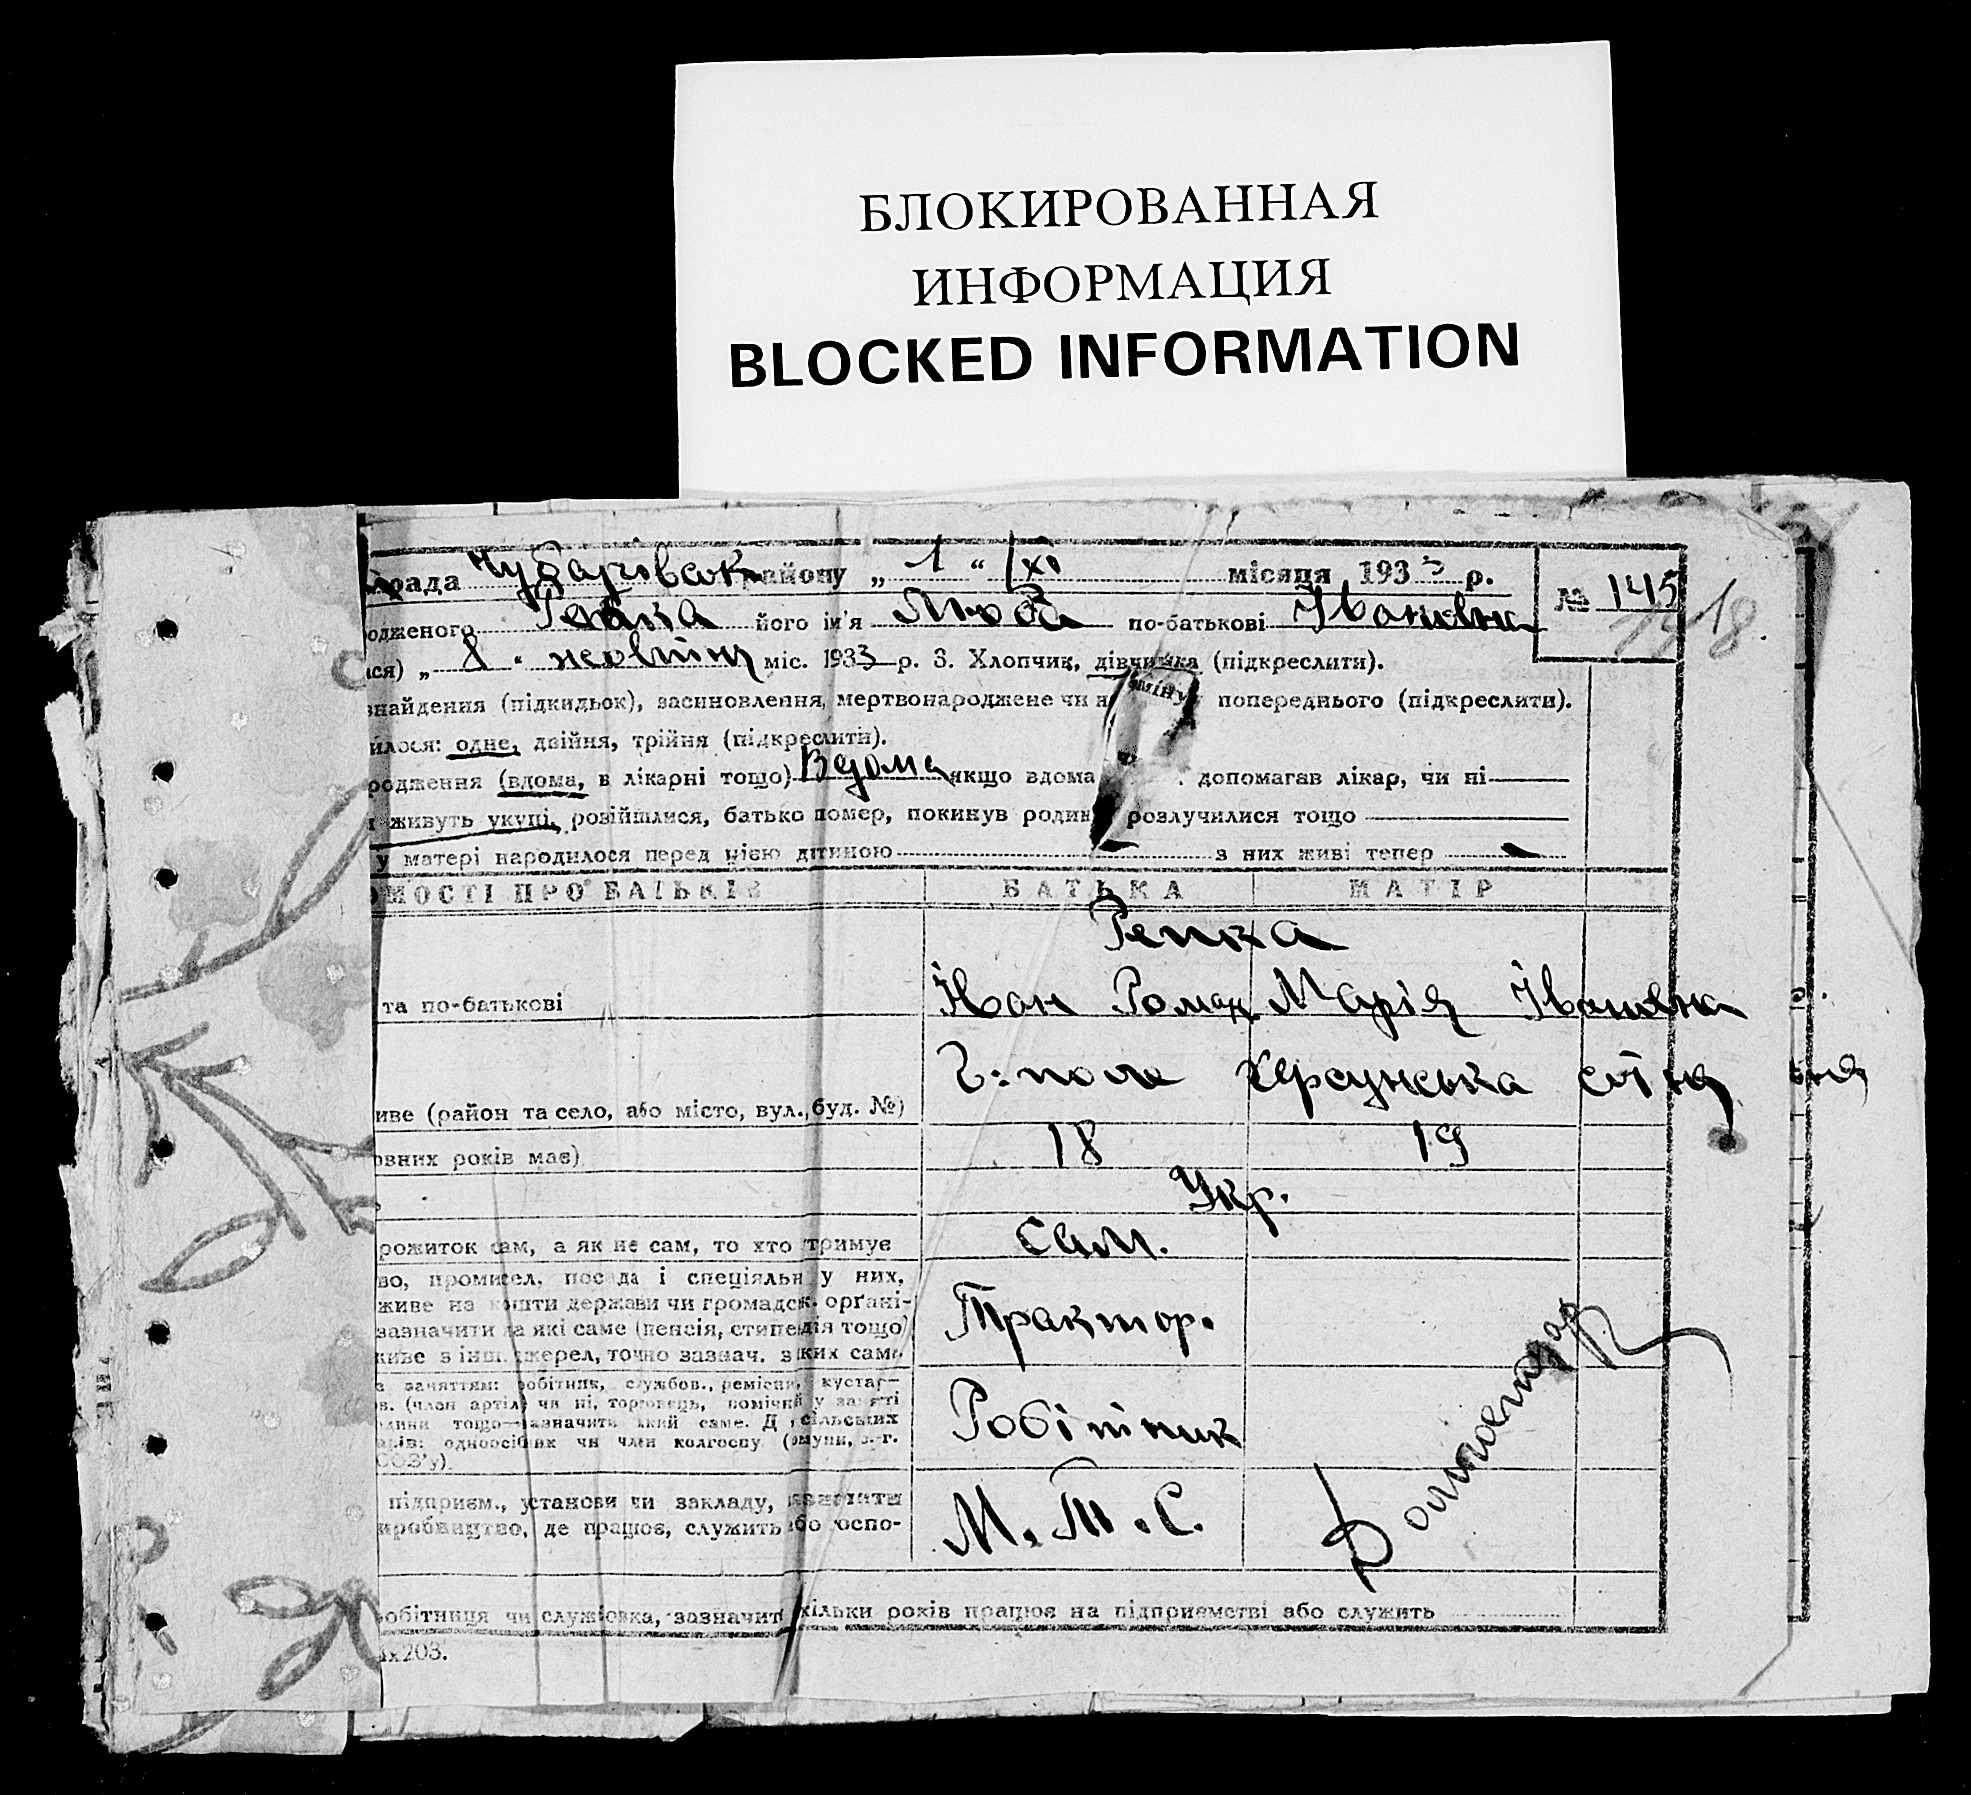 БЛОКИРОВАННАЯ
ИНФОРМАЦИЯ
BLOCKED INFORMATION
рада Чубарівськ району „ 1 “ /XI місяця 1933 р. № 145
18.
одженого Репка його ім'я Люба по-батькові Івановна
ся) „ 8 “ жовтня міс. 1933 р. 3. Хлопчик, дівчинка (підкреслити).
знайдення (підкидьок), засиновлення, мертвонароджене чи н заміну попереднього (підкреслити).
илося: одне, двійня, трійня (підкреслити).
родження (вдома, в лікарні тощо) Вдома якщо вдома допомагав лікар, чи ні
живуть укупі, розійшлися, батько помер, покинув родин розлучилися тощо
у матері народилося перед цією дитиною з них живі тепер —
ОМОСТІ ПРО БАТЬКІВ БАТЬКА МАТІР
Репка
та по-батькові Іван Роман Марія Івановна
Г: поле Херсунська
иве (район та село, або місто, вул., буд. №)
овних років має) 18 19
Укр.
рожиток сам, а як не сам, то хто тримує Сам.
во, промисел, посада і спеціяльн у них,
живе на кошти держави чи громадск. орґані-
зазначити за які саме (пенсія, стипендія тощо) Трактор.
живе з інш. джерел, точно зазнач. з яких саме
а заняттям: робітник, службов., ремісни, кустар—
в. (член артілі чи ні, торговець, помічний у занятті
дини тощо—зазначить який саме. Д сільських Робітник
одноосібник чи член колгоспу (
СОЗ'у).
підприєм., установи чи закладу,
иробництво, де працює, служить або оспо- М. Т. С.
обітниця чи службовка, зазначит скільки років працює на підприємстві або служить
х203.